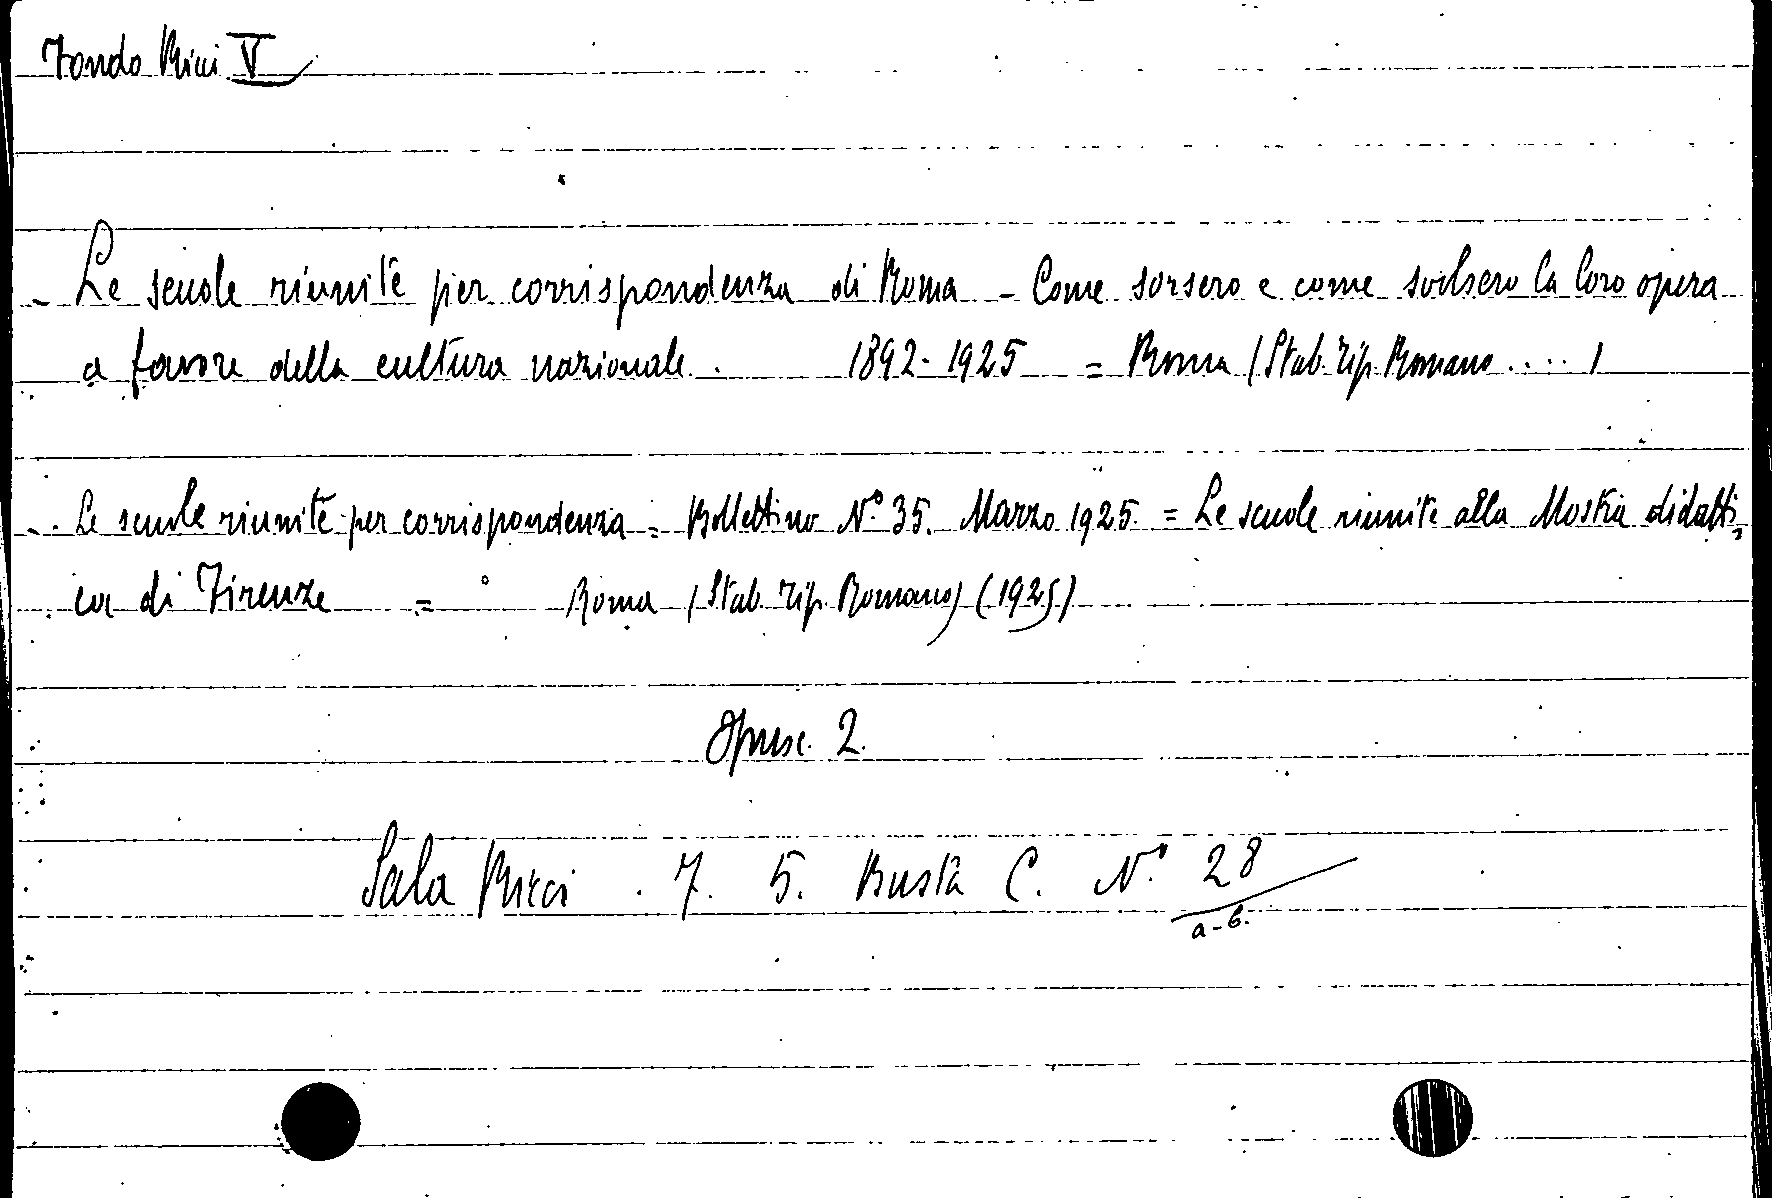 Fondo Ricci V
- Le scuole riunite per corrispondenza di Roma - Come sorsero e come svolsero la loro opera
a favore della cultura nazionale. 1892-1925 = Roma (Stab. Tip. Romano .... )
- Le scuole riunite per corrispondenza = Bollettino N° 35. Marzo 1925. = Le scuole riunite alla Mostra didatti,
ca di Firenze = Roma (Stab. Tip. Romano) (1925)
Opusc. 2.
Sala Ricci. 7. 5. Busta C. N° 28
a-b.